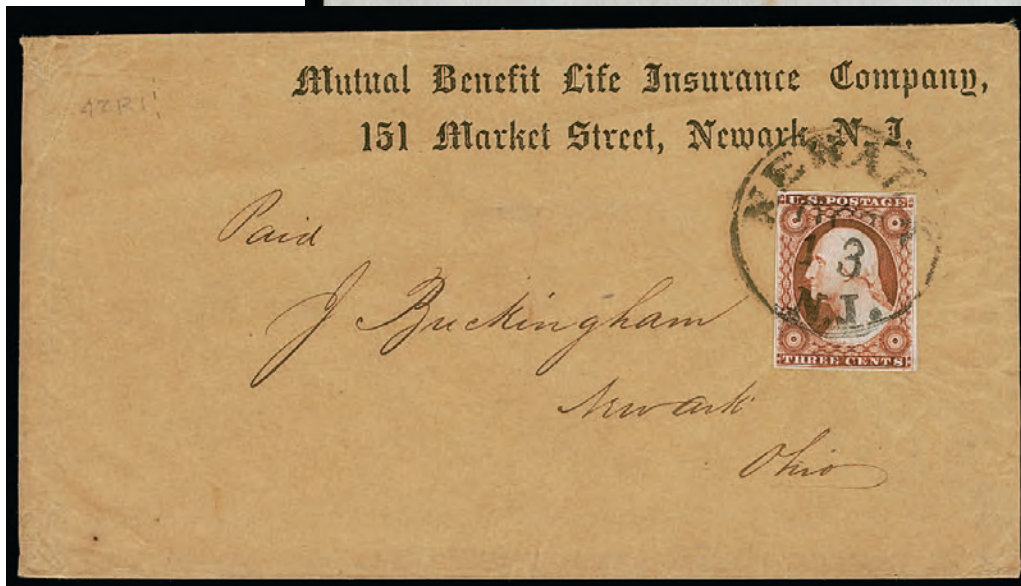 Mutual Benefit Life Insurance Company,
151 Market Street, Newark, N. J.
Paid
NEWARK
13
N.J.
U.S. POSTAGE
THREE CENTS
J Buckingham
Newark
Ohio